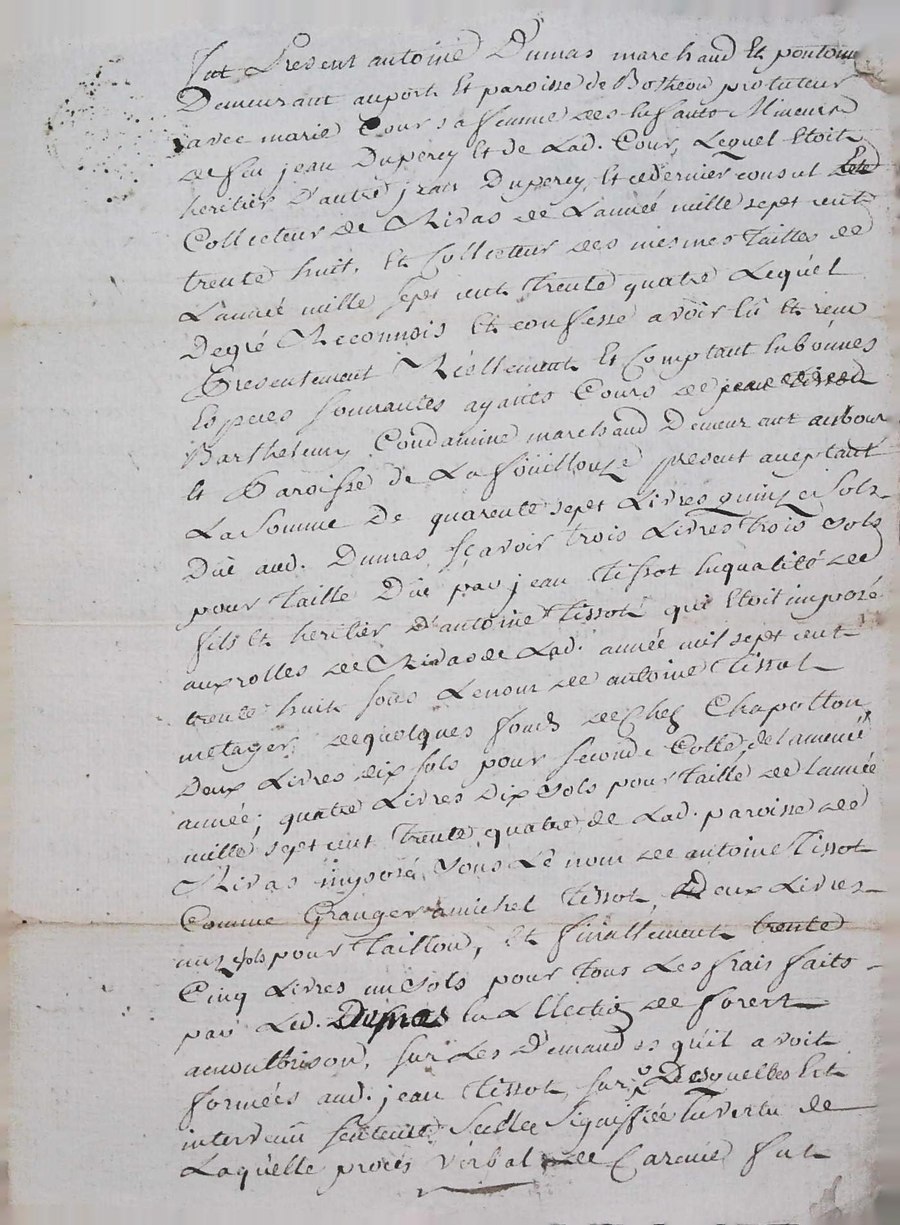 fut Present antoine Dumas marchand Et pontonn
Demeurant auport Et paroisse de Botheon protuteur
avec marie Cour sa femme des Enfants Mineurs
de feu jean Duperey Et de Lad. Cour, Lequel Etoit
heritier D'autre jean Duperey, Et cedernier consul Et
Collecteur de Rivas de L'année mille sept cent
trente huit, Et Collecteur des mesmes tailles de
L'année mille sept cent trente quatre Lequel
Degré Reconnois Et confesse avoir Eû Et receu
Presentement Réellement Et Comptant En bonnes
Especes sonnantes ayants Cours de
Barthelemy Condamine marchand Demeurant au bour
Et Paroisse de La foüillouze present aceptant
La Somme De quarente sept Livres quinze sols
Düe aud. Dumas, sçavoir trois Livres trois sols
pour taille Düe par jean tissot En qualité de
fils Et heritier D'antoine tissot qui Etoit imposé
aux rolles de Rivas de Lad. année mil sept cent
trente huit sous Lenom de antoine Tissot
métager, de quelques fonds de chez Chapotton
Deux Livres dix sols pour seconde Cotte, de la meme
année; quatre Livres Dix sols pour taille de L'année
mille sept cent trente quatre de Lad. paroisse de
Rivas imposé, sous Le nom de antoine Tissot
Comme Granger a michel tissot, Deux Livres
un sols pour taillon, Et finallement trente
Cinq Livres un sols pour tous Les frais faits
par Led. Dumas En L'Election de forest
a montbrison, sur Les Demandes qu'il avoit
formées aud. jean tissot, sur Desquelles Est
intervenu sentence Scellée Signiffiée En vertu de
Laquelle procés Verbal de Carence fut